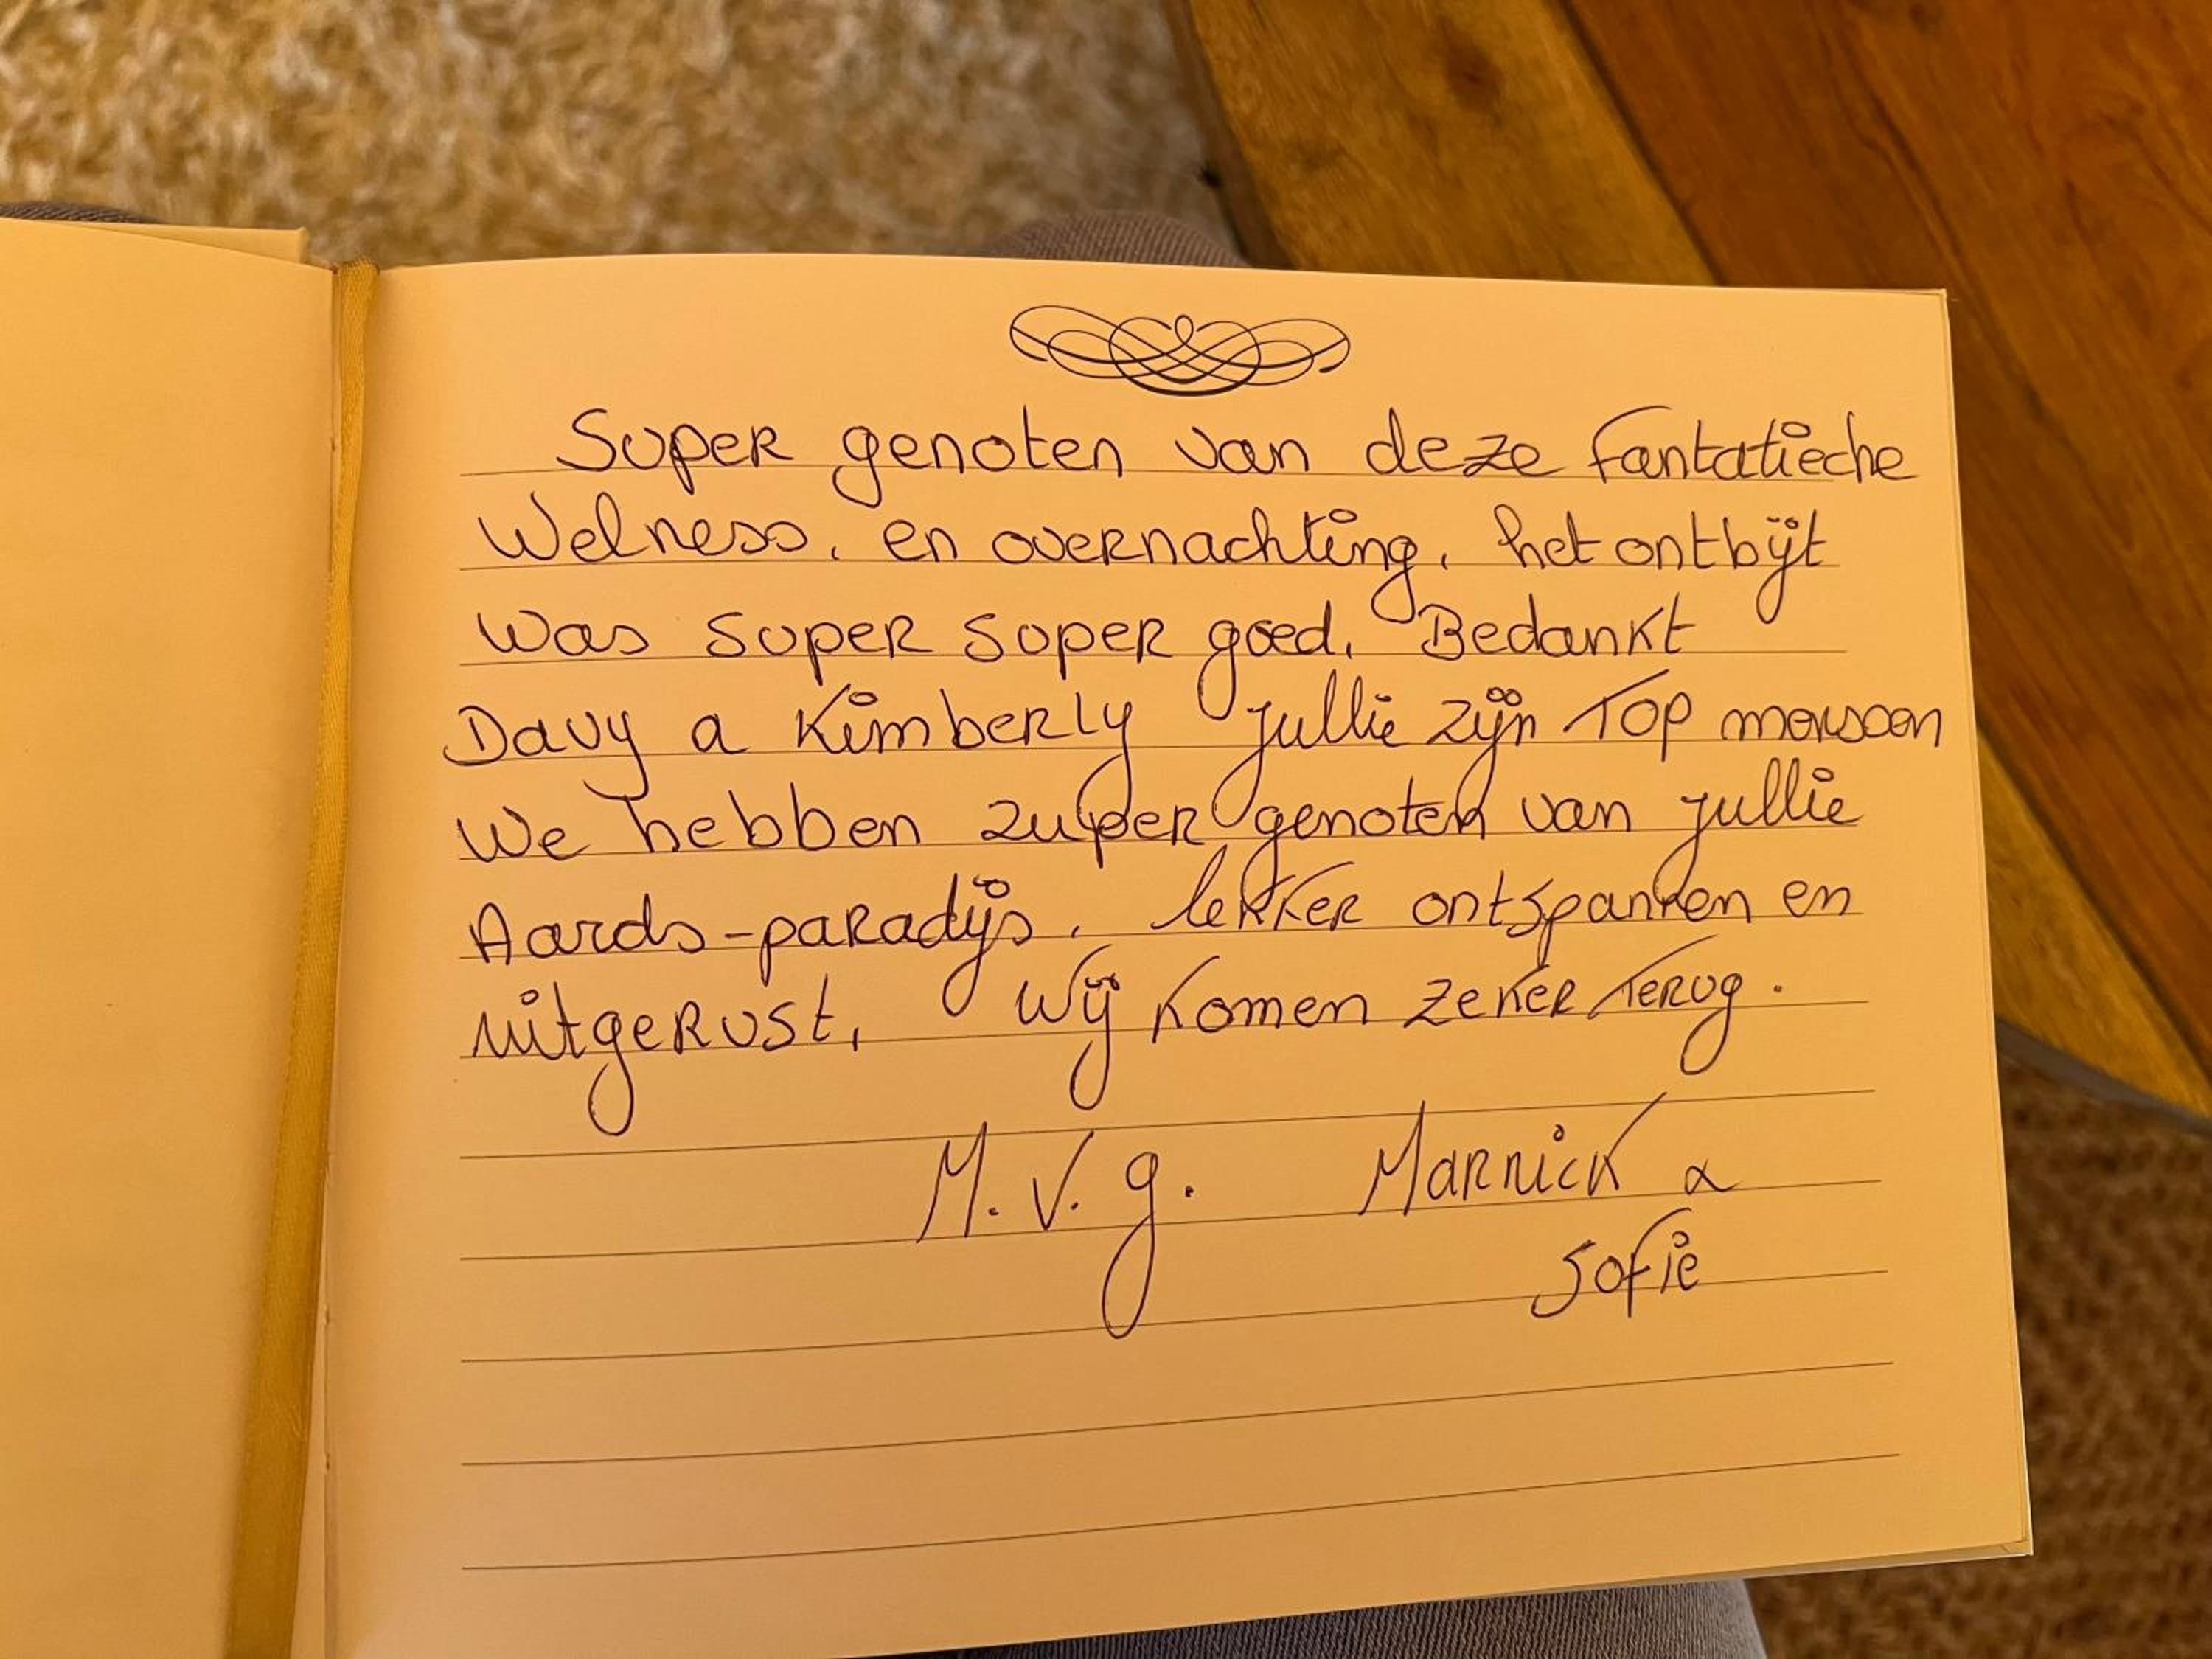 Super genoten van deze fantatieche
Welness. en overnachting. het ontbijt
was super super goed. Bedankt
Davy & Kimberly jullie zijn Top mensen
We hebben zuper genoten van jullie
Aards-paradijs. lekker ontspannen en
uitgerust. Wij komen zeker terug.
M.V.g. Marnick &
Sofie